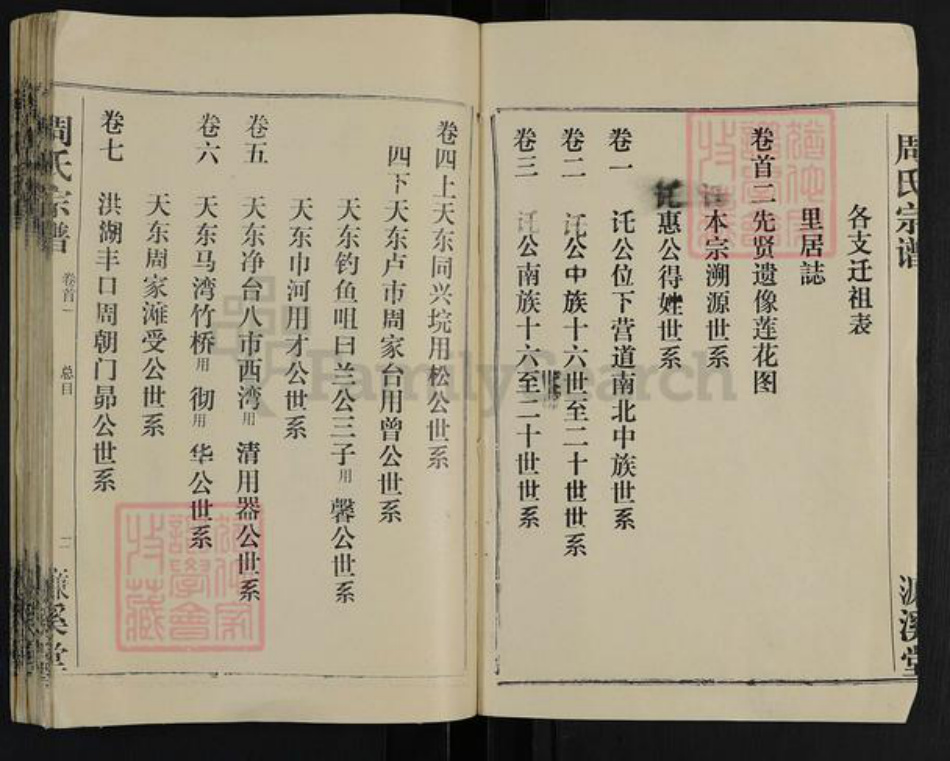 周氏宗谱
濂溪堂
各支迁祖表
里居誌
卷首二先贤遗像莲花图
本宗溯源世系
惠公得姓世系
卷一 讬公位下营道南北中族世系
卷二 讬公中族十六世至二十世世系
卷三 讬公南族十六至二十世世系
卷四上天东同兴垸用松公世系
四下天东卢市周家台用曾公世系
天东钓鱼咀曰兰公三子用馨公世系
天东巾河用才公世系
卷五 天东净台八市西湾用清用器公世系
卷六 天东马湾竹桥用彻用华公世系
天东周家滩受公世系
卷七 洪湖丰口周朝门昴公世系
周氏宗谱
卷首一
总目
二
濂溪堂
FamilySearch